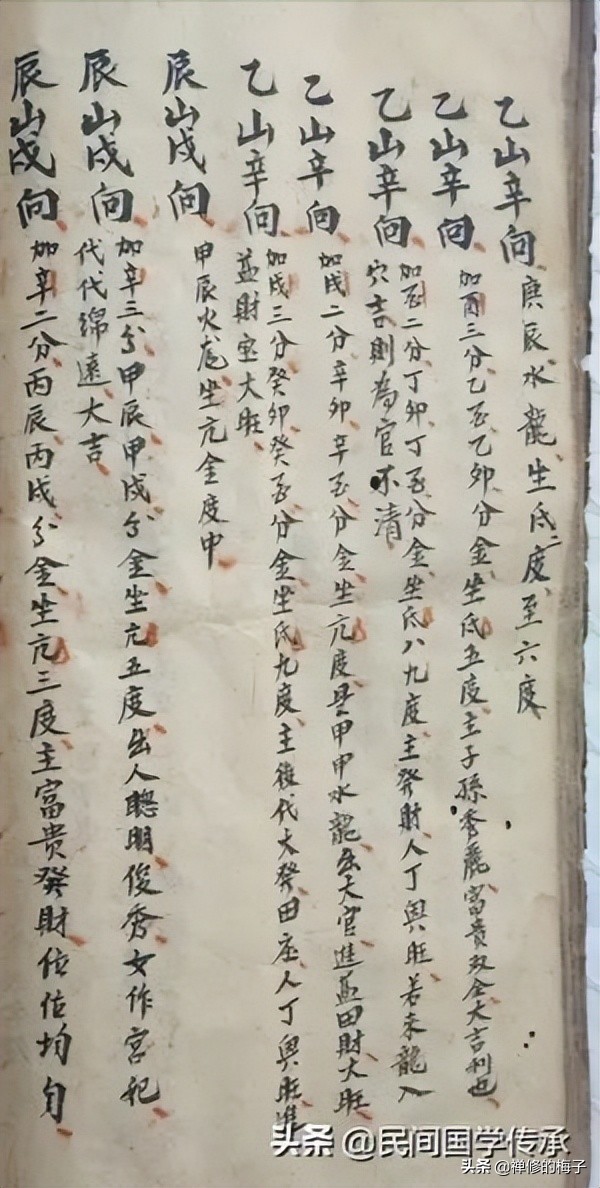 乙山辛向 庚辰水龍坐氐二度至六度
乙山辛向 加酉三分乙酉乙卯分金坐氐五度主子孫秀麗富貴双全大吉利也
乙山辛向 加酉二分丁卯丁酉分金坐氐八九度主發財人丁興旺若来龍入
穴吉則為官不清
乙山辛向 加戌二分辛卯辛酉分金坐亢度是甲申水龍出大官進益田財大旺
乙山辛向 加戌三分癸卯癸酉分金坐氐九度主後代大發田庄人丁興旺進
益財宝大旺
辰山戌向 甲辰火龙坐亢金度中
辰山戌向 加辛三分甲辰甲戌分金坐亢五度出人聰明俊秀女作宮妃
代代綿遠大吉
辰山戌向 加辛二分丙辰丙戌分金坐亢三度主富贵發财位位均匀
头条 @民间国学传承
头条 @禅修的梅子